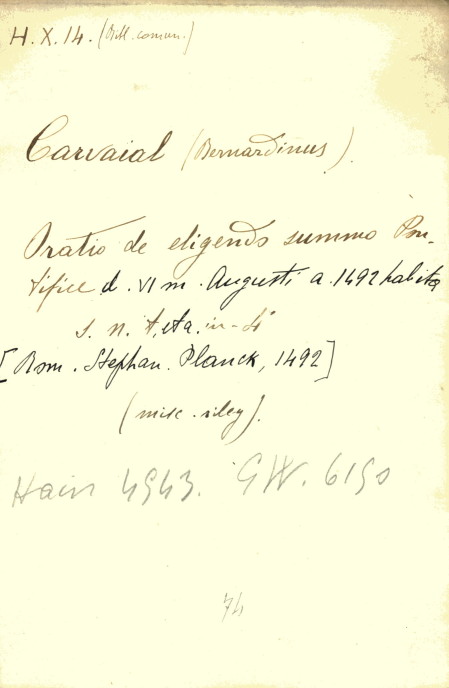 H.X.14. (Bibl. comun.)
Carvaial (Bernardinus).
Oratio de eligendo summo Pon-
tifice d. VI m. Augusti a. 1492 habita
s. n. t. et a. in-4°
[Rom. Stephan. Planck, 1492]
(misc.
Hain 4543. GW. 6150
74